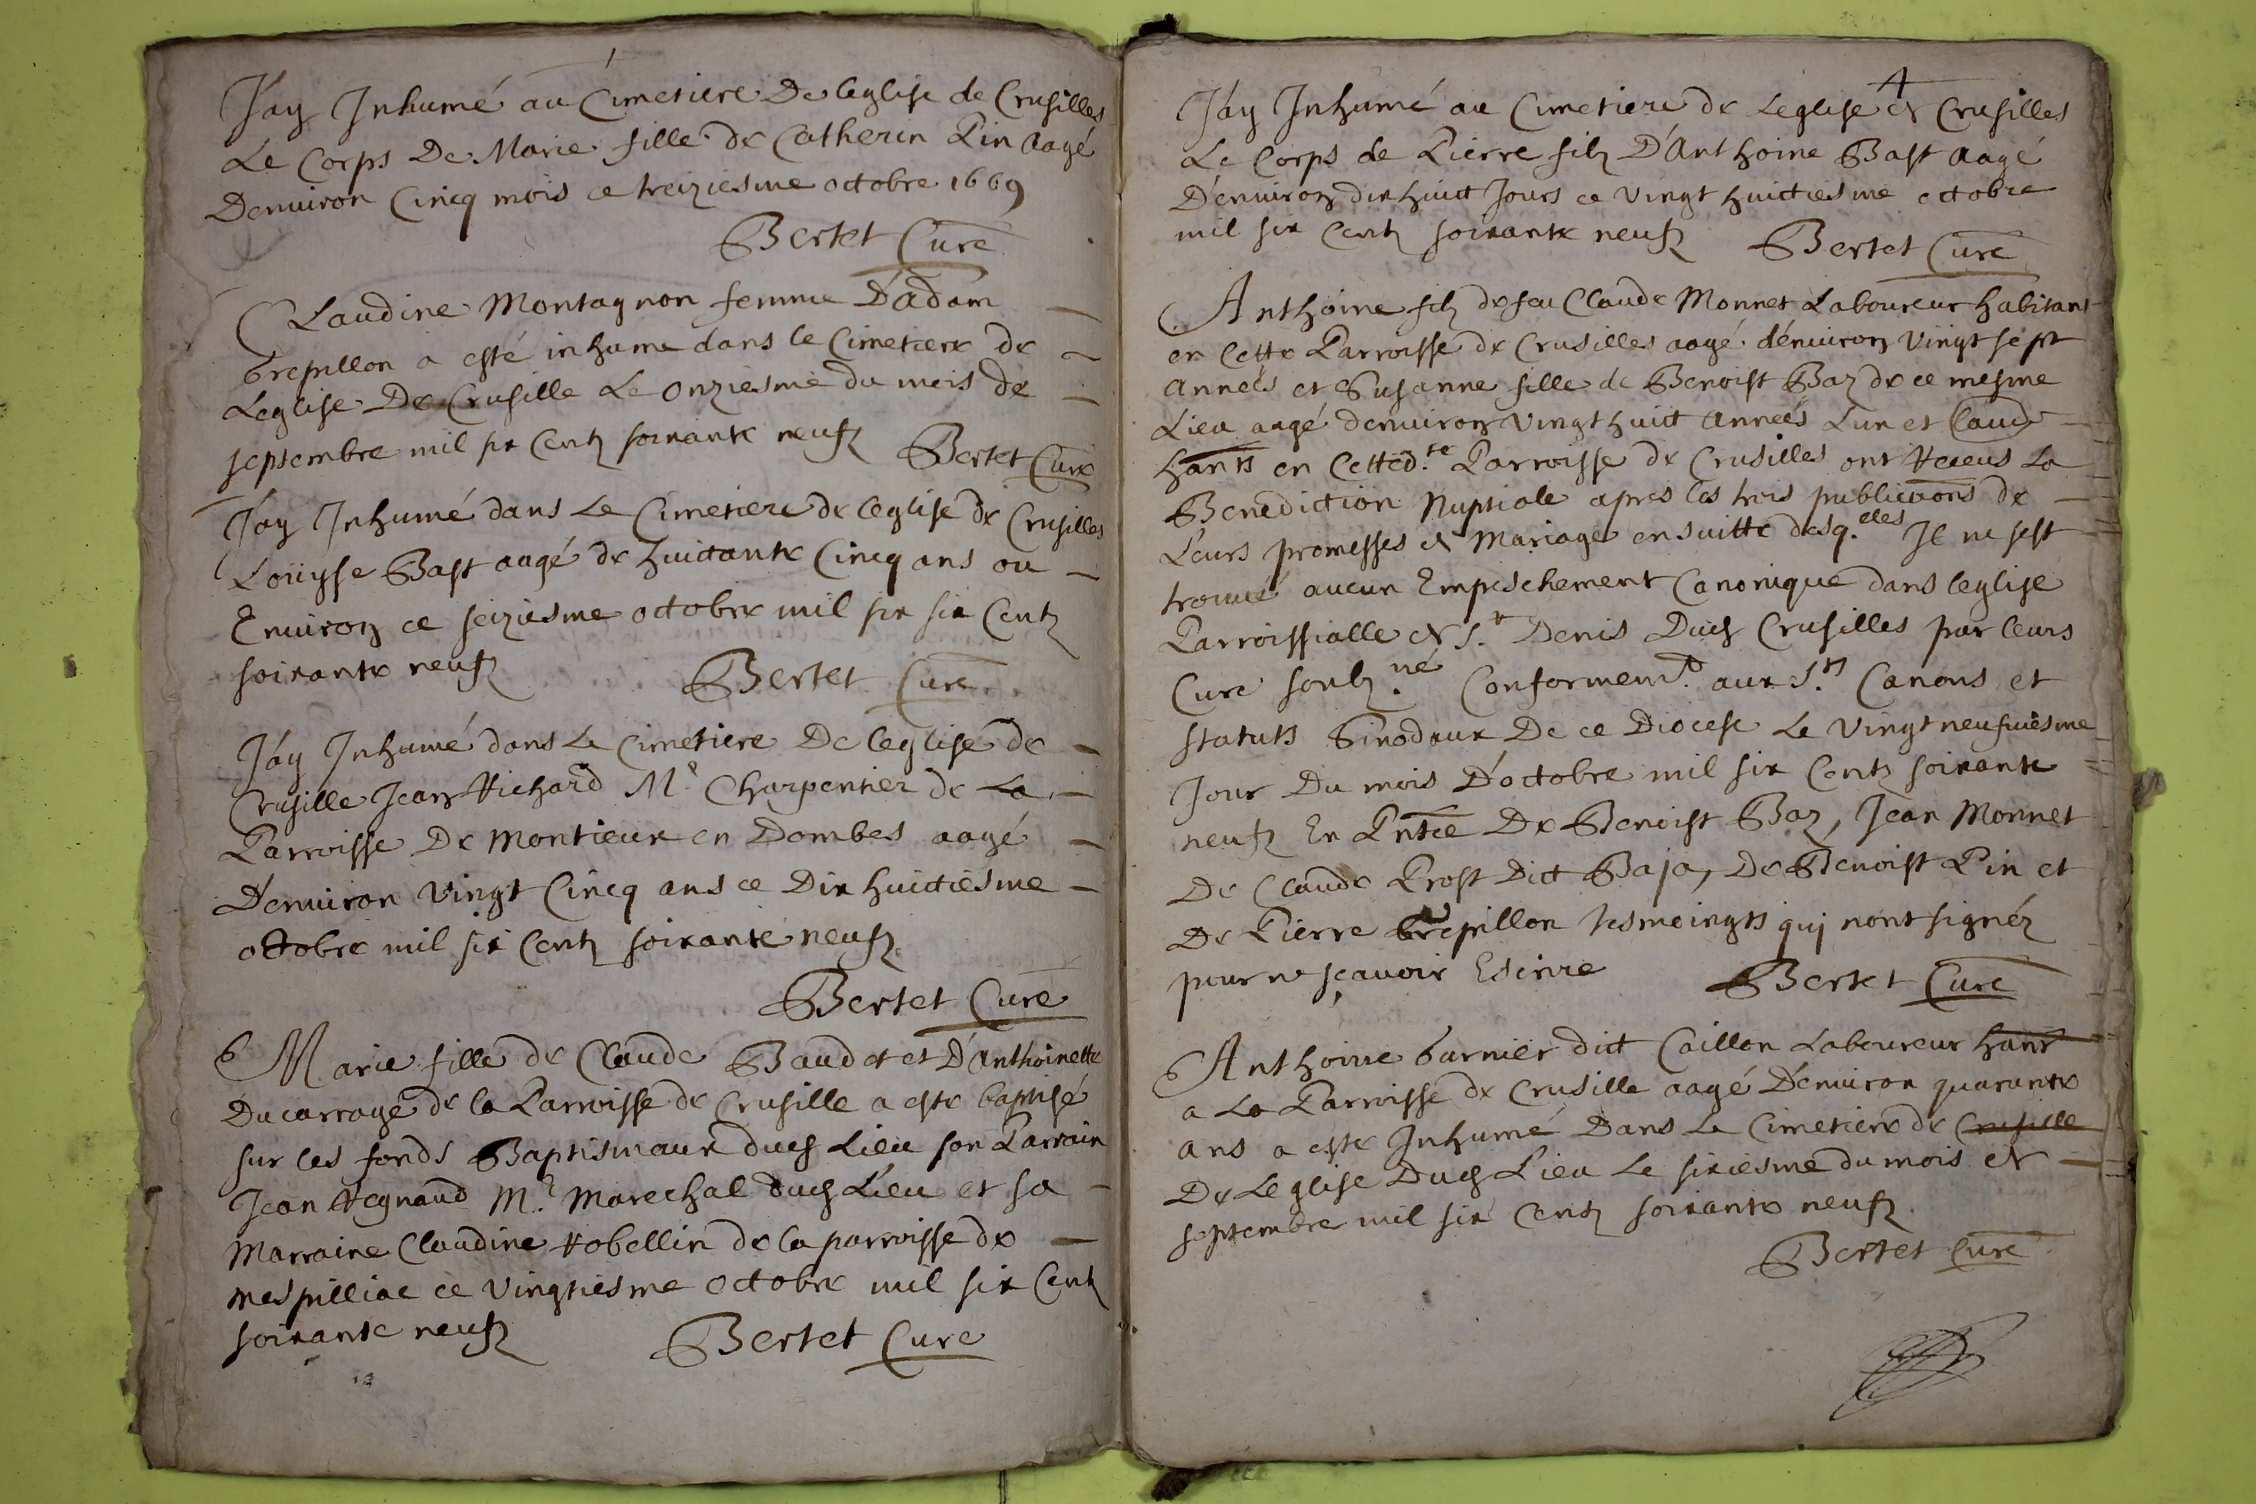 Jay Inhumé au Cimetiere De leglise de Crusilles
Le Corps De Marie fille de Catherin Pin aagé
Denuiron Cincq mois ce treiziesme octobre 1669
Bertet Curé
Claudine Montagnon femme D'adam
Brepillon a esté inhume dans le Cimetiere de
Leglise De Crusille Le onziesme du mois de
septembre mil six Centz soixante neufz Bertet Curé
Jay Inhumé dans Le Cimetiere de leglise de Crusilles
Loüyse Bast aagé de huictante Cincq ans ou
Enuiron ce seiziesme octobre mil six six Centz
soixante neufz Bertet Curé
Jáy Inhumé dans Le Cimetiere De leglise de
Crusille Jean Richard Mᵉ Charpentier de La
Parroisse De Montieux en Dombes aagé
D'enuiron Vingt Cincq ans ce Dix huictiésme
octobre mil six Centz soixante neufz
Bertet Curé
Marie fille de Claude Baudet et D'Anthoinette
Ducarrage de la Parroisse de Crusille a esté baptisé
sur les fonds Baptismaux dud Lieu son Parrain
Jean Regnaud Mᵉ Marechal dud Lieu et sa
Marraine Claudine Robellin de la parroisse de
mespilliac ce Vingtiésme octobre mil six Centz
soixante neufz Bertet Curé
4
Jáy Inhumé au Cimetiere de Leglise de Crusilles
Le Corps de Pierre filz D'Anthoine Bast aagé
D'enuiron dix huict Jours ce Vingt huictiesme octobre
mil six Centz soixante neufz Bertet Curé
Anthoine filz de feu Claude Monnet Laboureur habitant
en Cette Parroisse de Crusilles aagé d'enuiron Vingt sept
Années et Susanne fille de Benoist Baz de ce mesme
Lieu aagé denuiron Vingt huict Années Lun et Laud
hants en Cetted.te Parroisse de Crusilles ont Receus La
Benediction Nuptiale apres les trois publications de
Leurs promesses de Mariage ensuitte desq.elles Il ne sest
trouué aucun Empeschement Canonique dans leglise
Parroissialle de S.t Denis Dud Crusilles par leurs
Curé soubz.né Conformem.t aux S.ts Canons et
statuts Sinodaux De ce Diocese Le Vingt neufuiésme
Jour Du mois D'octobre mil six Centz soixante
neufz En Pntce De Benoist Baz, Jean Monnet
De Claude Prost Dict Baja, De Benoist Pin et
De Pierre Brepillon tesmoingts qui nont signéz
pour ne sçauoir Escrire Bertet Curé
Anthoine Garnier dict Caillon Laboureur hant
a La Parroisse de Crusille aagé D'enuiron quarante
ans a esté Inhumé Dans Le Cimetiere de Crusille
De Leglise Dud Lieu Le sixiesme du mois de
septembre mil six Centz soixante neufz
Bertet Curé